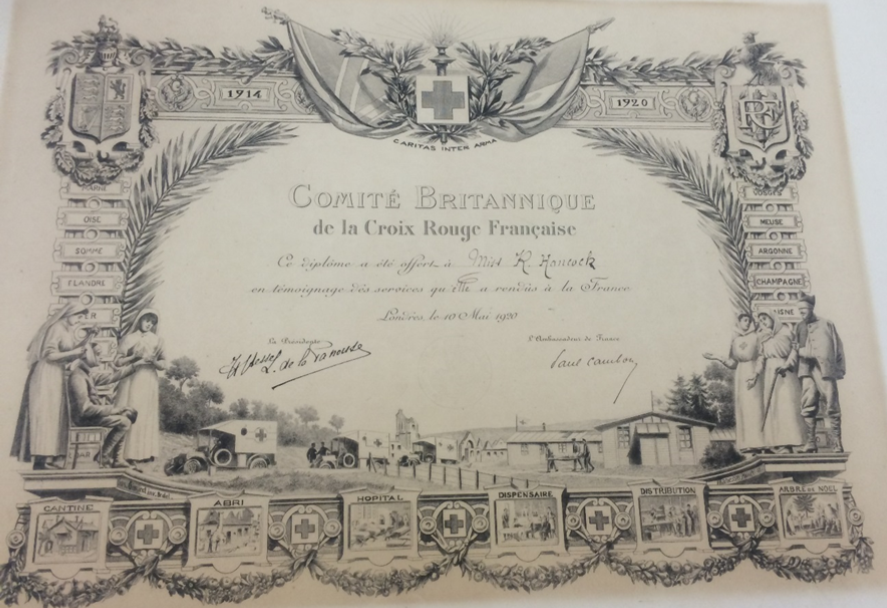 1914
1920
CARITAS INTER ARMA
RF
COMITÉ BRITANNIQUE
de la Croix Rouge Française
Ce diplôme a été offert à Miss K. Hancock
en témoignage des services qu'elle a rendus à la France
Londres, le 10 Mai 1920
La Présidente
L'Ambassadeur de France
L. de la Panouse
Paul Cambon
MARNE
OISE
SOMME
FLANDRE
MEUSE
ARGONNE
CHAMPAGNE
AISNE
CANTINE
ABRI
HOPITAL
DISPENSAIRE
DISTRIBUTION
ARBRE DE NOEL